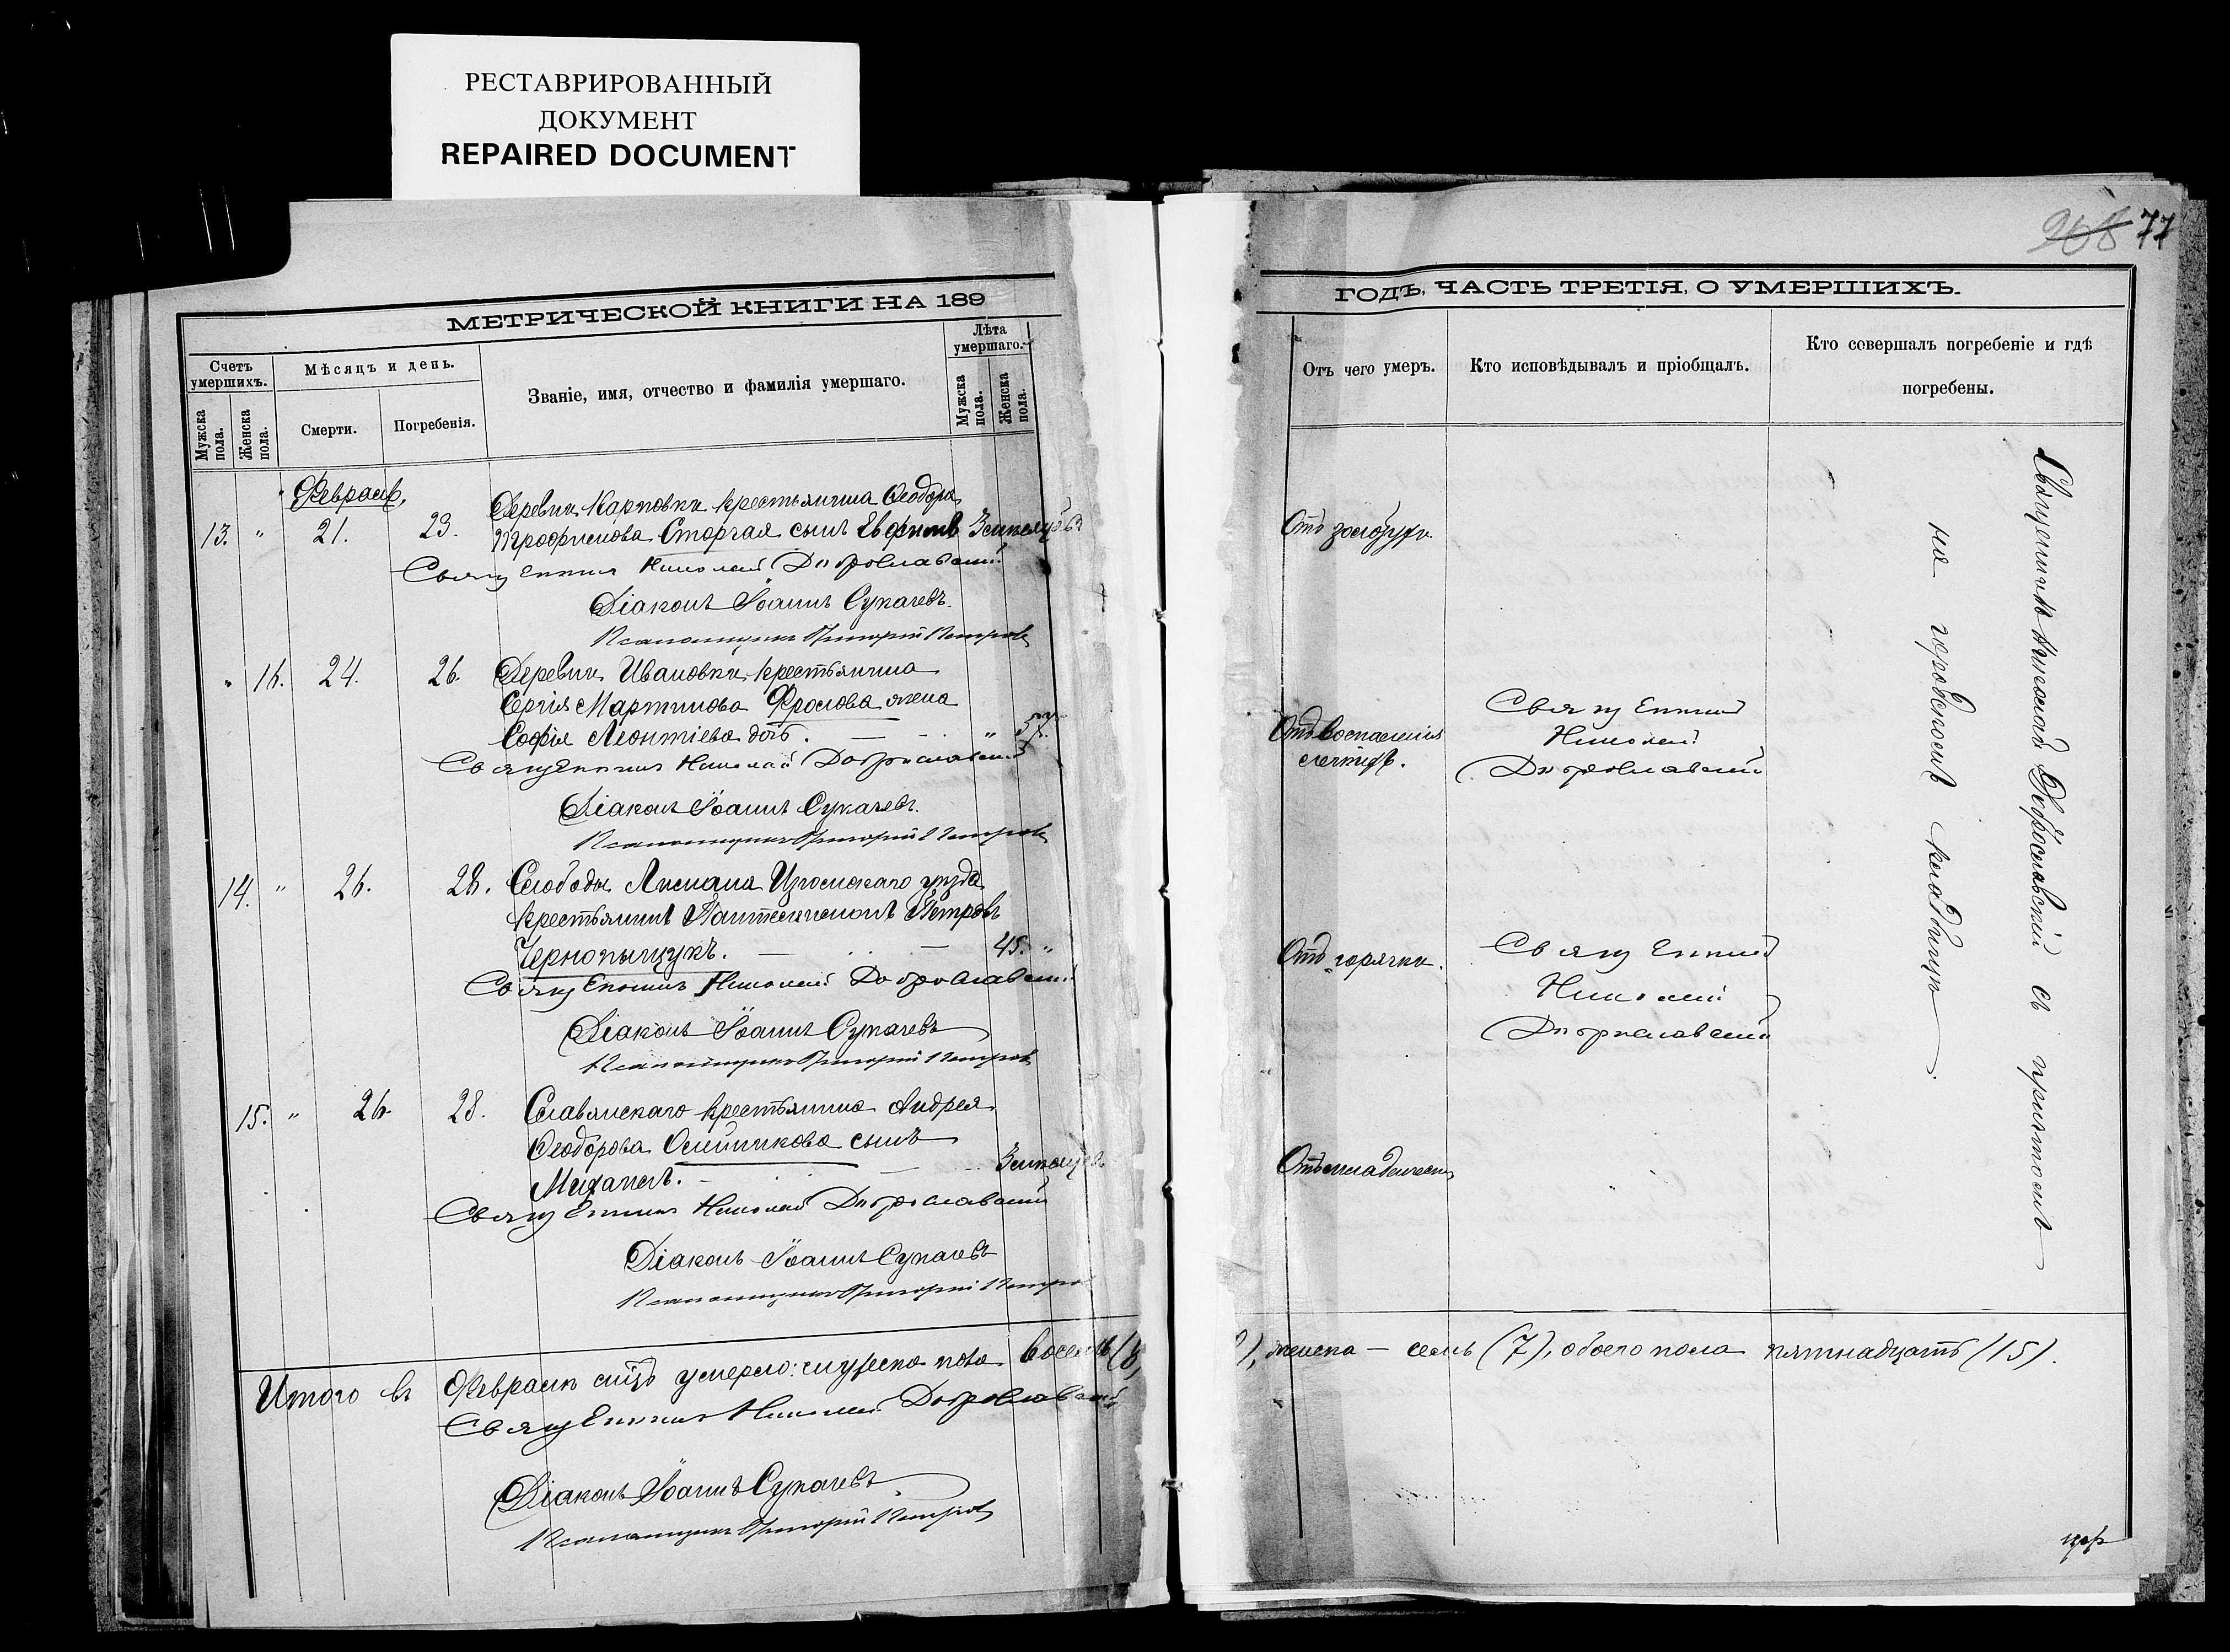 РЕСТАВРИРОВАННЫЙ
ДОКУМЕНТ
REPAIRED DOCUMENT
МЕТРИЧЕСКОЙ КНИГИ НА 189
Счетъ умершихъ.
Мужска пола.
Женска пола.
Мѣсяцъ и день.
Смерти.
Погребенія.
Званіе, имя, отчество и фамилія умершаго.
Лѣта умершаго.
Мужска пола.
Женска пола.
Февраль.
13. " 21. 23. Деревни Карповки крестьянина Ѳеодора
Трофимова Сторчая сынъ Евфимій
Священникъ Николай Доброславскій
Діаконъ Іоаннъ Сукачевъ.
Псаломщикъ Григорій Петровъ
" 16. 24. 26. Деревни Ивановки крестьянина
Сергія Мартинова Фролова жена
Софія Леонтіева дочь. " 57.
Священникъ Николай Доброславскій
Діаконъ Іоаннъ Сукачевъ.
Псаломщикъ Григорій Петровъ
14. " 26. 28. Слободы Лимана Изюмскаго уѣзда
крестьянинъ Пантелеимонъ Петровъ
45. "
Священникъ Николай Доброславскій
Діаконъ Іоаннъ Сукачевъ
Псаломщикъ Григорій Петровъ
15. " 26. 28. Славянскаго крестьянина Андрея
Ѳеодорова Олейникова сынъ
Михаилъ.
Священникъ Николай Доброславскій
Діаконъ Іоаннъ Сукачевъ
Псаломщикъ Григорій Петровъ
Итого въ Февралѣ мцѣ умерло: мужеска пола восемь (8
Священникъ Николай Доброславскій
Діаконъ Іоаннъ Сукачевъ
Псаломщикъ Григорій Петровъ
77
ГОДЪ, ЧАСТЬ ТРЕТІЯ, О УМЕРШИХЪ.
Отъ чего умеръ.
Кто исповѣдывалъ и пріобщалъ.
Кто совершалъ погребеніе и гдѣ
погребены.
Отъ золотухи.
Отъ воспаленія
легкихъ.
Священникъ
Николай
Доброславскій
Отъ горячки.
Священникъ
Николай
Доброславскій
Отъ младенческой
Священникъ Николай Доброславскій съ причтомъ
на городскомъ кладбищѣ
), женска — семь (7), обоего пола пятнадцать (15).